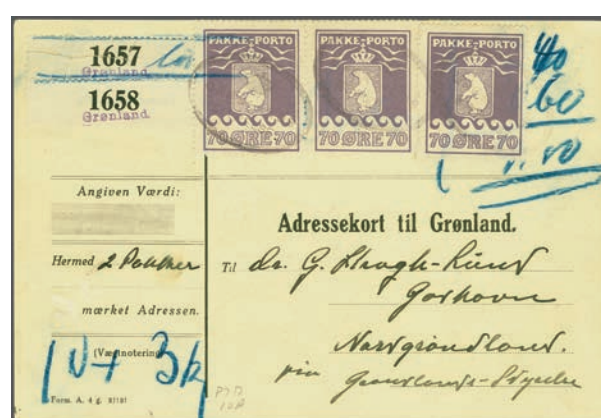 1657
Grønland.
1658
Grønland.
PAKKE-PORTO
70 ØRE 70
PAKKE-PORTO
70 ØRE 70
PAKKE-PORTO
70 ØRE 70
40
60
Angiven Værdi:
Hermed 2 Pakker
mærket Adressen.
(Vægtnotering)
Form. A. 4 g.
Adressekort til Grønland.
Til dr. G.
Godhavn
Nordgrønland.
via Grønlands-Styrelse